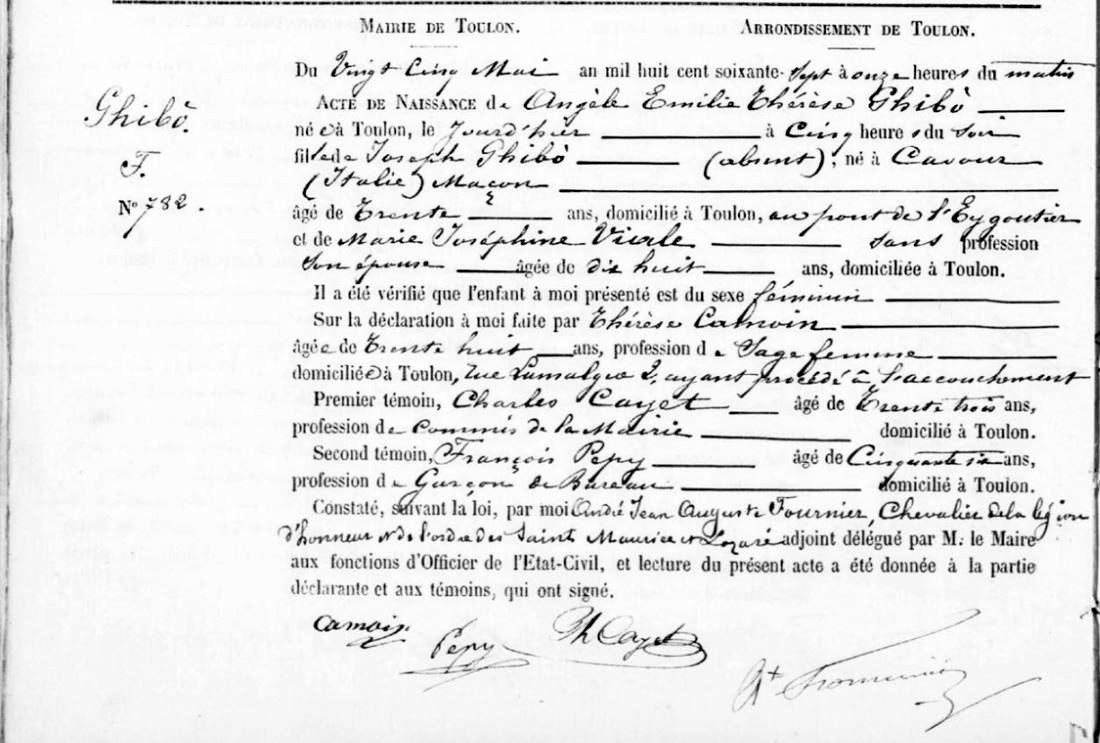 MAIRIE DE TOULON. ARRONDISSEMENT DE TOULON.
Du Vingt Cinq Mai an mil huit cent soixante-sept à onze heures du matin
Ghibò.
F.
N° 782.
ACTE DE NAISSANCE de Angèle Emilie Thérèse Ghibò
née à Toulon, le jourd'hier à Cinq heures du soir
fille de Joseph Ghibò (absent), né à Cavour
(Italie) Maçon
âgé de Trente ans, domicilié à Toulon, au pont de l'Eygoutier
et de Marie Joséphine Viale sans profession
son épouse âgée de dix huit ans, domiciliée à Toulon.
Il a été vérifié que l'enfant à moi présenté est du sexe féminin
Sur la déclaration à moi faite par Thérèse Camoin
âgée de Trente huit ans, profession de Sage femme
domiciliée à Toulon, rue Lamalgue 2, ayant procédé à l'accouchement
Premier témoin, Charles Cayet âgé de Trente trois ans,
profession de Commis de la Mairie domicilié à Toulon.
Second témoin, François Pépy âgé de Cinquante six ans,
profession de Garçon de Bureau domicilié à Toulon.
Constaté, suivant la loi, par moi André Jean Auguste Fournier, Chevalier de la légion
d'honneur et de l'ordre des Saints Maurice et Lazare adjoint délégué par M. le Maire
aux fonctions d'Officier de l'Etat-Civil, et lecture du présent acte a été donnée à la partie
déclarante et aux témoins, qui ont signé.
Camoin.
Pépy
Ch Cayet
Fournier